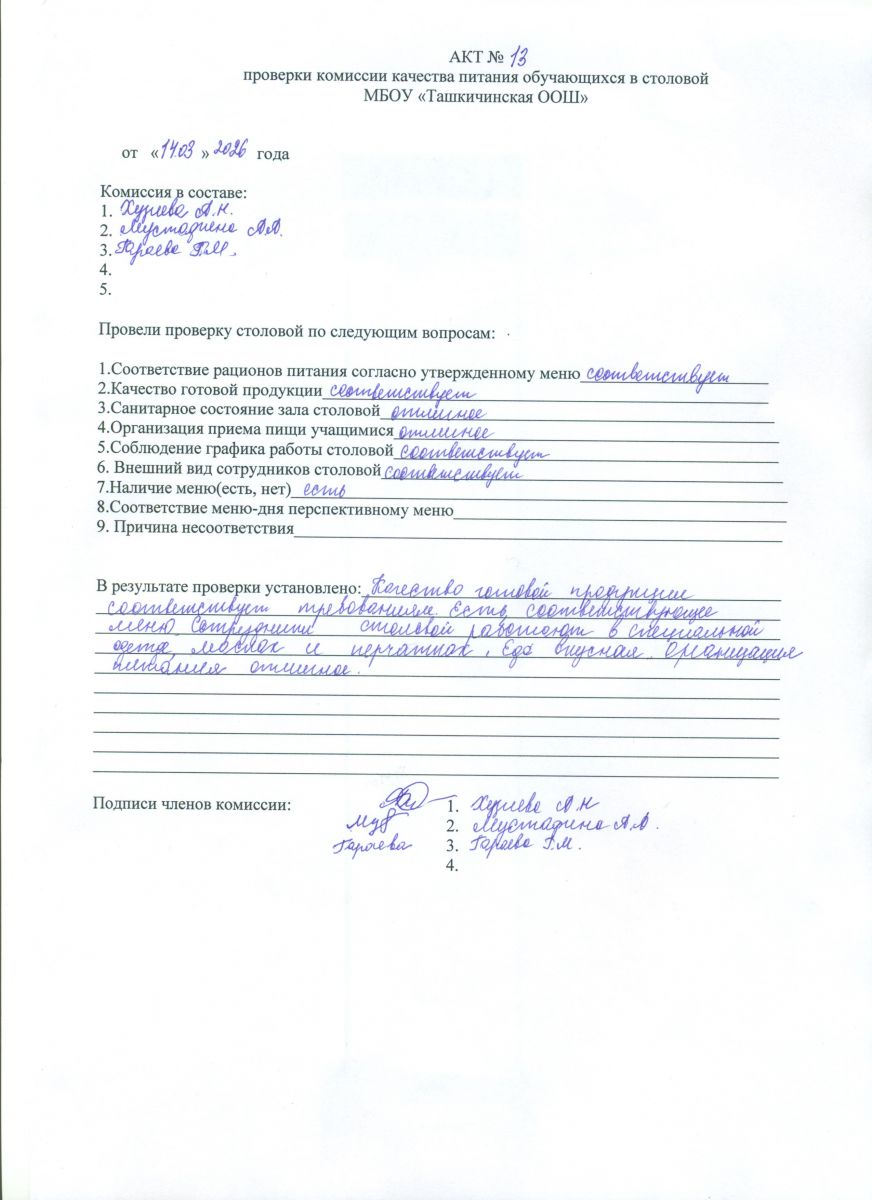 АКТ № 13
проверки комиссии качества питания обучающихся в столовой
МБОУ «Ташкичинская ООШ»
от «14.03» 2026 года
Комиссия в составе:
1. Хузиева А.Н.
2. Мустафина А.А.
3. Гараева Г.М.
4.
5.
Провели проверку столовой по следующим вопросам:
1.Соответствие рационов питания согласно утвержденному меню соответствует
2.Качество готовой продукции соответствует
3.Санитарное состояние зала столовой отличное
4.Организация приема пищи учащимися отличное
5.Соблюдение графика работы столовой соответствует
6. Внешний вид сотрудников столовой соответствует
7.Наличие меню(есть, нет) есть
8.Соответствие меню-дня перспективному меню
9. Причина несоответствия
В результате проверки установлено: Качество готовой продукции
соответствует требованиям. Есть соответствующее
меню. Сотрудники столовой работают в специальной
одежде, масках и перчатках. Еда вкусная. Организация
питания отличное.
Подписи членов комиссии: 1. Хузиева А.Н
Муб 2. Мустафина А.А.
Гараева 3. Гараева Г.М.
4.